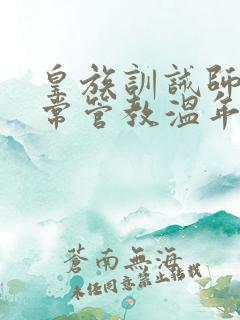 皇族訓誡師
常管教溫年
蒼南無海
未經同意禁止轉載